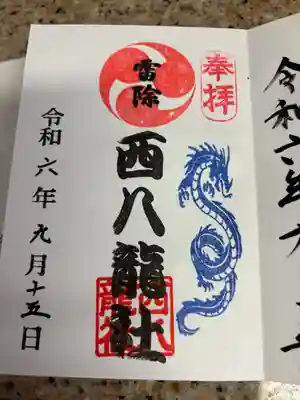 奉拝
雷除
西八龍社
令和六年九月十五日
令和六年九